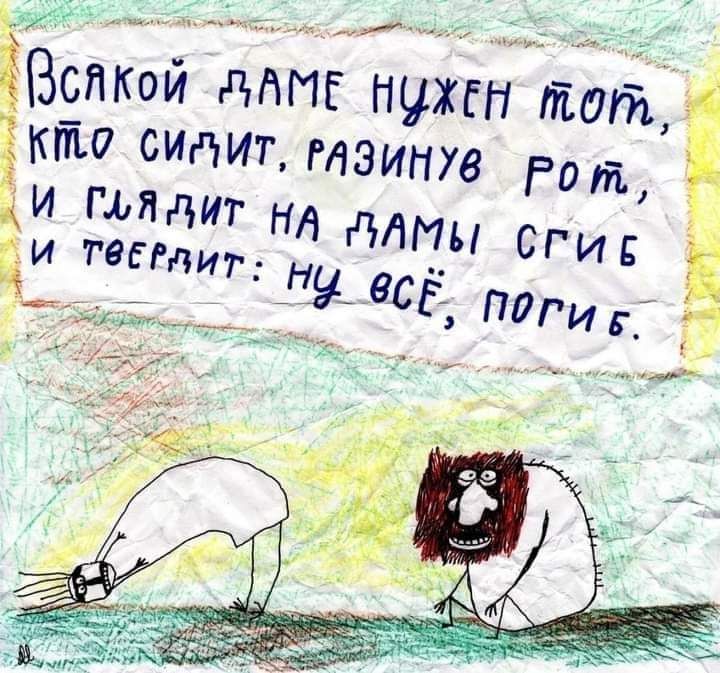 Всякой даме нужен тот,
кто сидит, разинув рот,
и глядит на дамы сгиб
и твердит: ну всё, погиб.